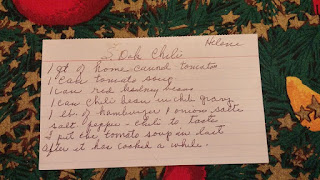 Helene
Chili
1 qt. of home canned tomatoes
1 can tomato soup
1 can red kidney beans
1 can chili bean in chili gravy
1 lb. of hamburger 1 onion, salt
salt pepper - chili to taste
I put the tomato soup in last
after it has cooked a while.